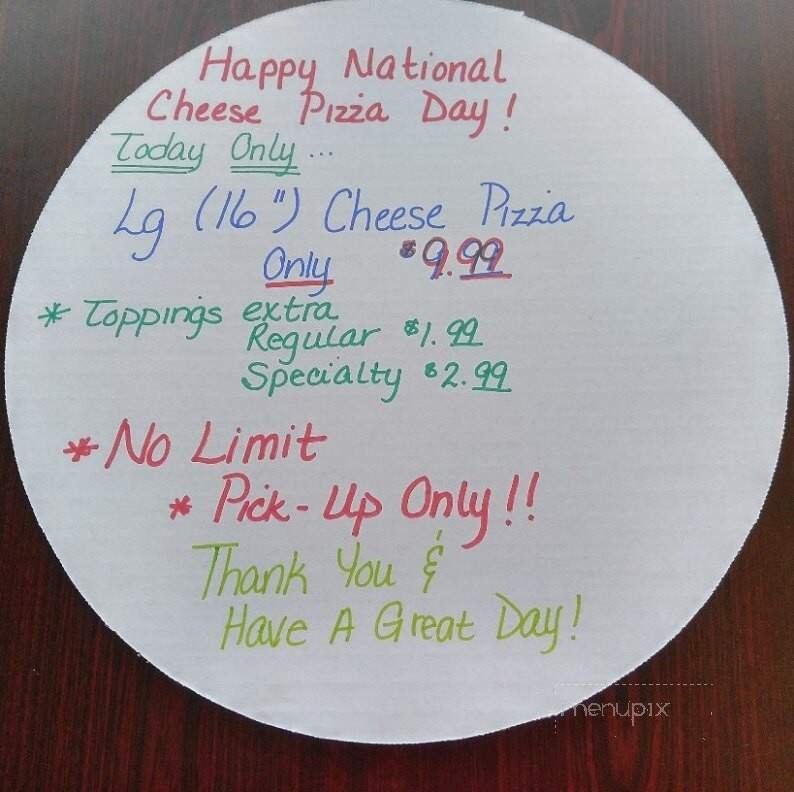 Happy National
Cheese Pizza Day!
Today Only...
Lg (16") Cheese Pizza
Only $9.99
* Toppings extra
Regular $1.99
Specialty $2.99
* No Limit
* Pick-Up Only!!
Thank You &
Have A Great Day!
menupix